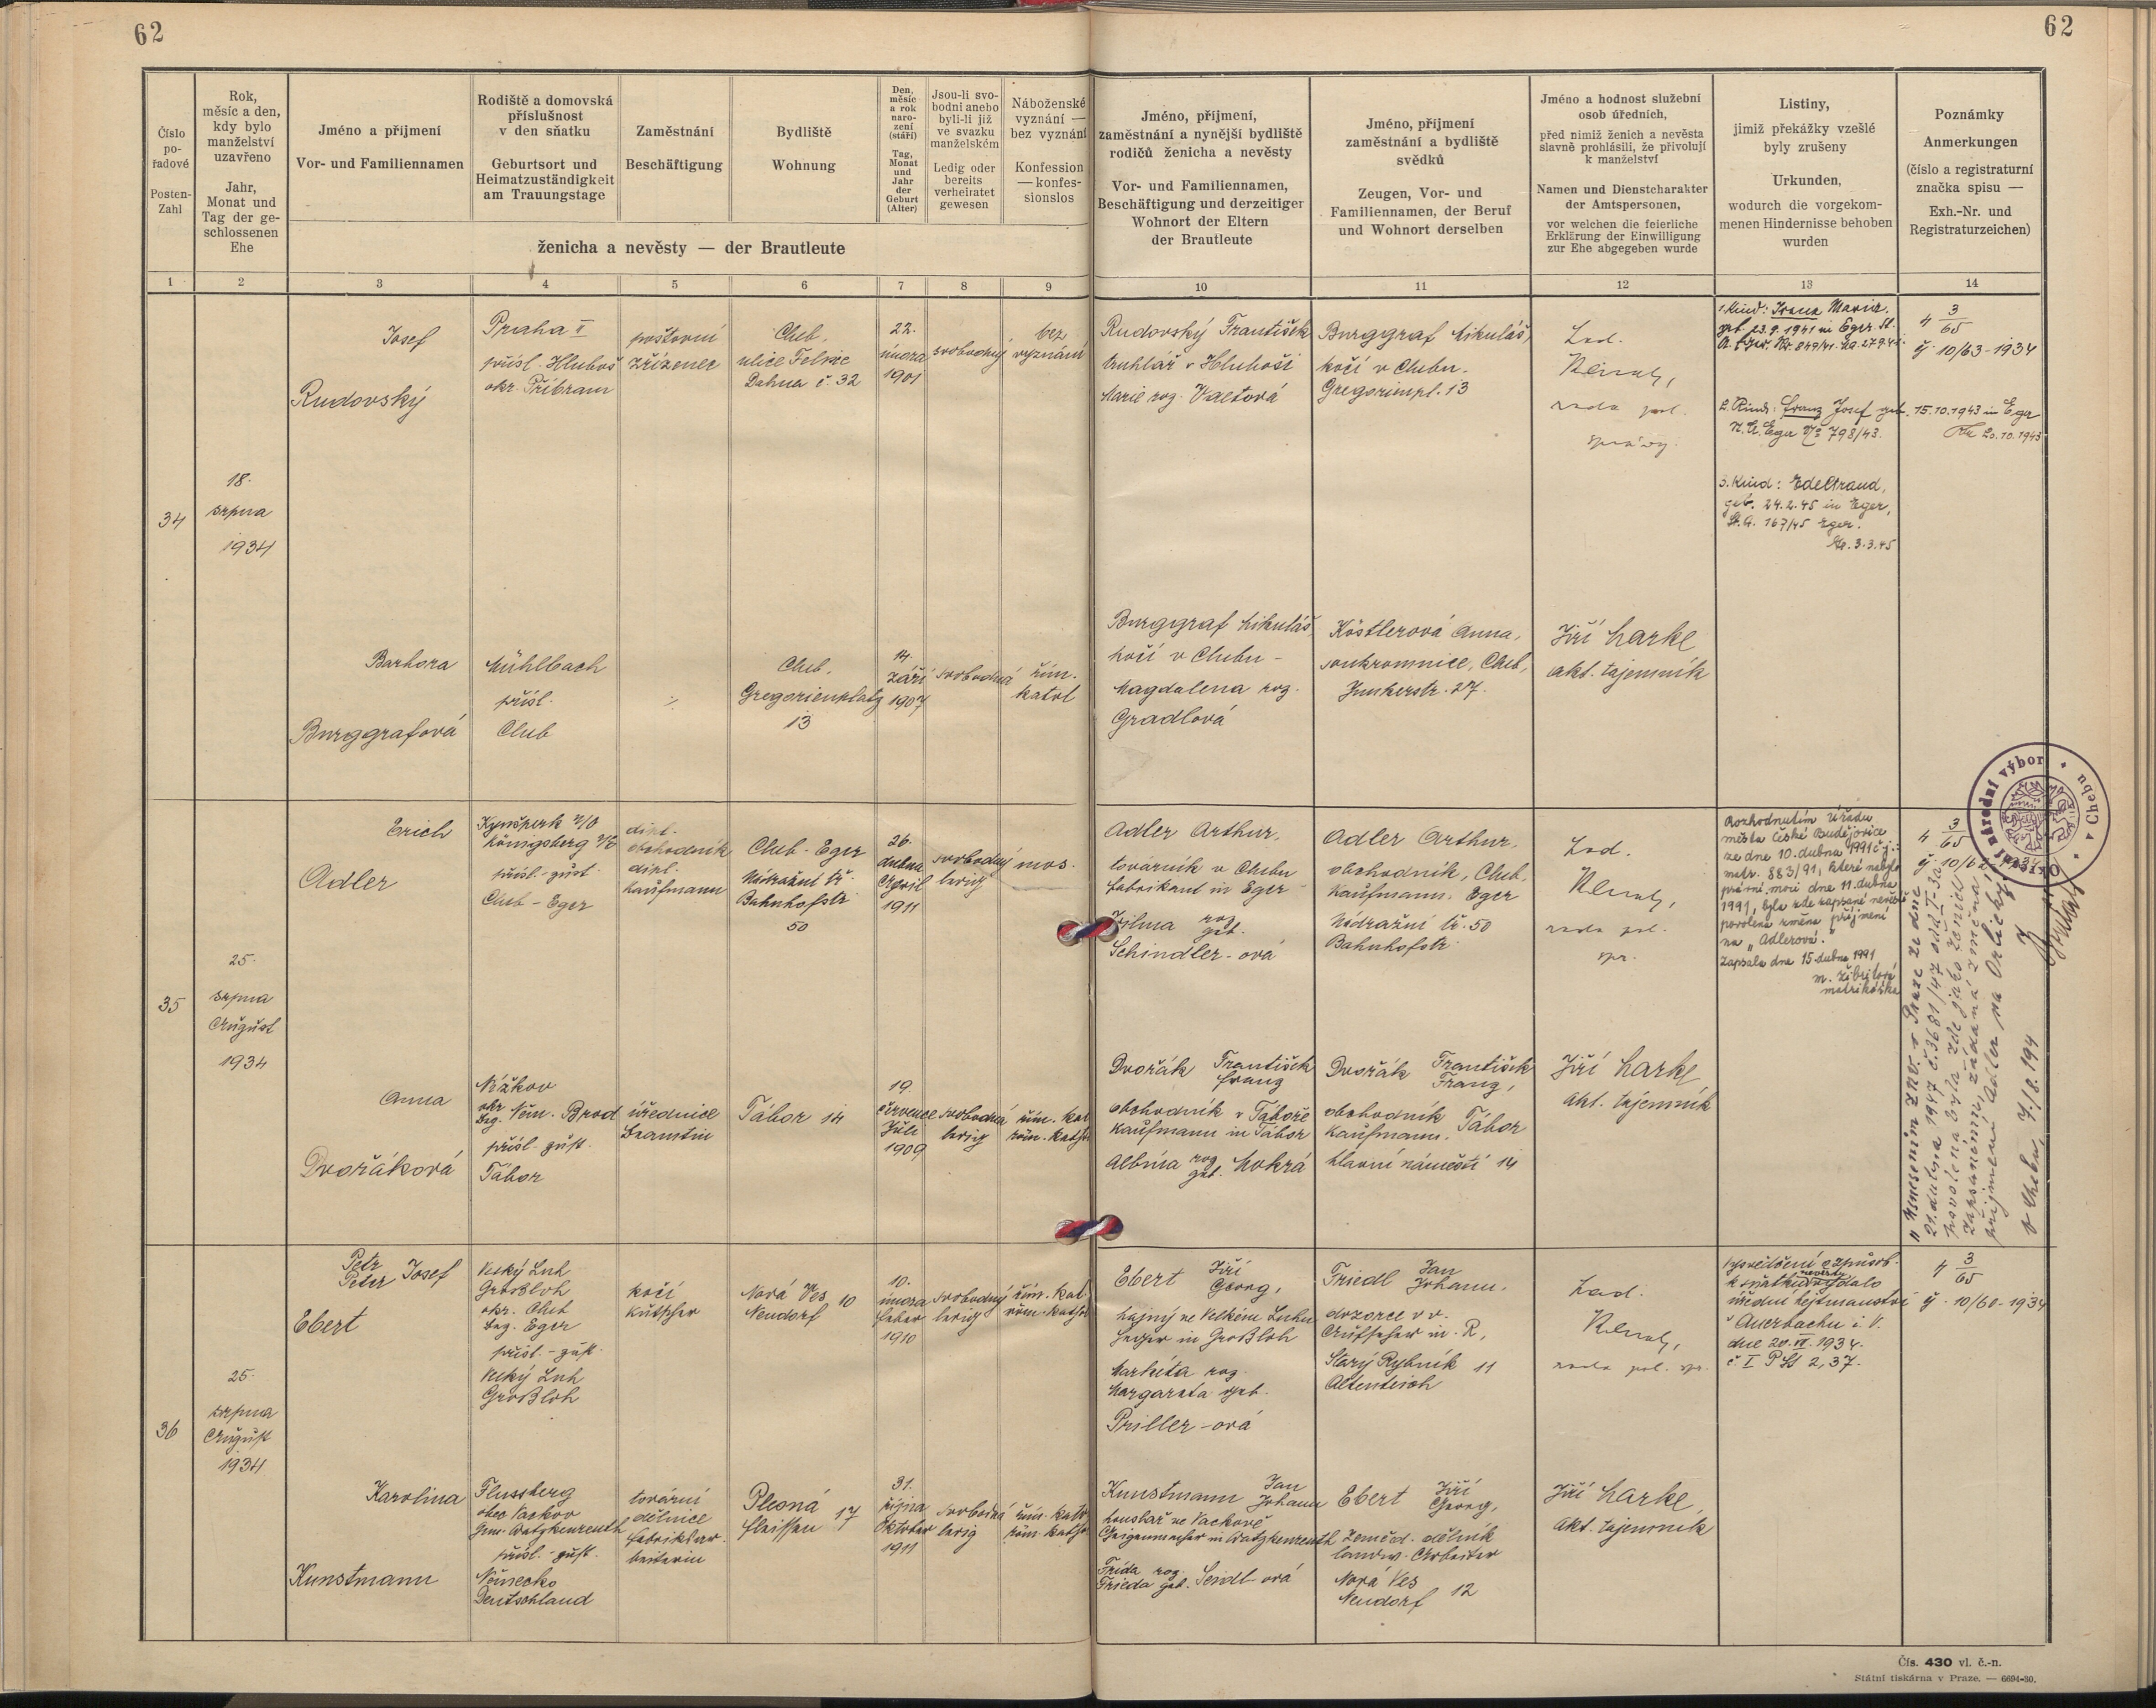 62
62
Číslo
po-
řadové
Posten-
Zahl
Rok,
měsíc a den,
kdy bylo
manželství
uzavřeno
Jahr,
Monat und
Tag der ge-
schlossenen
Ehe
Jméno a příjmení
Vor- und Familiennamen
Rodiště a domovská
příslušnost
v den sňatku
Geburtsort und
Heimatzuständigkeit
am Trauungstage
Zaměstnání
Beschäftigung
Bydliště
Wohnung
Den,
měsíc
a rok
naro-
zení
(stáří)
Tag,
Monat
und
Jahr
der
Geburt
(Alter)
Jsou-li svo-
bodni anebo
byli-li již
ve svazku
manželském
Ledig oder
bereits
verheiratet
gewesen
Náboženské
vyznání —
bez vyznání
Konfession
— konfes-
sionslos
ženicha a nevěsty — der Brautleute
Jméno, příjmení,
zaměstnání a nynější bydliště
rodičů ženicha a nevěsty
Vor- und Familiennamen,
Beschäftigung und derzeitiger
Wohnort der Eltern
der Brautleute
Jméno, příjmení
zaměstnání a bydliště
svědků
Zeugen, Vor- und
Familiennamen, der Beruf
und Wohnort derselben
Jméno a hodnost služební
osob úředních,
před nimiž ženich a nevěsta
slavně prohlásili, že přivolují
k manželství
Namen und Dienstcharakter
der Amtspersonen,
vor welchen die feierliche
Erklärung der Einwilligung
zur Ehe abgegeben wurde
Listiny,
jimiž překážky vzešlé
byly zrušeny
Urkunden,
wodurch die vorgekom-
menen Hindernisse behoben
wurden
Poznámky
Anmerkungen
(číslo a registraturní
značka spisu —
Exh.-Nr. und
Registraturzeichen)
1 2 3 4 5 6 7 8 9 10 11 12 13 14
34
18.
srpna
1934
Josef
Rudovský
Praha II
přísl. Hluboš
okr. Příbram
poštovní
zřízenec
Cheb,
ulice Felixe
Dahna č. 32
22.
února
1901
svobodný
bez
vyznání
Rudovský František
truhlář v Hluboši
Marie roz. Valtová
Burggraf Mikuláš,
kočí v Chebu.
Gregorienpl. 13
Lad.
rada pol.
správy.
1. Kind: Irena Maria,
geb. 23.9.1941 in Eger St.
A. Eger. Nr. 849/41.
4 3/65
čj 10/63-1934
2. Kind: Franz Josef geb. 15.10.1943 in Eger
St. A. Eger No 798/43.
20.10.1943
3. Kind: Edeltraud,
geb. 24.2.45 in Eger,
St. A. 167/45 Eger.
3.3.45
Barbora
Burggrafová
Mühlbach
přísl.
Cheb
Cheb,
Gregorienplatz
13
14.
září
1907
svobodná
řím.
katol
Burggraf Mikuláš
kočí v Chebu -
Magdalena roz.
Gradlová
Köstlerová Anna,
soukromnice, Cheb,
Junkerstr. 27.
Jiří Harke
akt. tajemník
35
25.
srpna
August
1934
Erich
Adler
Kynšperk n/O
Königsberg a/E
přísl. - zust.
Cheb - Eger
dipl.
obchodník
dipl.
Kaufmann
Cheb - Eger
Nádražní tř.
Bahnhofstr
50
26.
dubna
April
1911
svobodný
ledig
mos.
Adler Arthur,
továrník v Chebu
Fabrikant in Eger
Vilma roz.
geb.
Schindler-ová
Adler Arthur,
obchodník, Cheb,
Kaufmann, Eger
Nádražní tř. 50
Bahnhofstr.
Lad.
rada pol.
spr.
Rozhodnutím Úřadu
města České Budějovice
ze dne 10. dubna 1991 čj.:
matr. 883/91, které nabylo
právní moci dne 11. dubna
1991, byla zde zapsané nevěstě
povolena změna příjmení
na „Adlerová.“
Zapsala dne 15. dubna 1991
matrikářka
4 3/65
„Usnesením ZNV. v Praze ze dne
povolena byla zde jako ženich
zapsanému, žádaná změna
příjmení Adler na Orlický.
V Chebu, 7./8. 194
Okresní národní výbor v Chebu
Anna
Dvořáková
Nížkov
okr. Něm. Brod
Bez.
přísl. - zust.
Tábor
úřednice
Beamtin
Tábor 14
19
července
Juli
1909
svobodná
ledig
řím. kat
röm. kath
Dvořák František
Franz
obchodník v Táboře
Kaufmann in Tábor
Albína roz. Mokrá
geb.
Dvořák František
Franz,
obchodník
Kaufmann, Tábor
hlavní náměstí 14
Jiří Harke
akt. tajemník
36
25.
srpna
August
1934
Petr
Peter Josef
Ebert
Velký Luh
Großloh
okr. Cheb
Bez. Eger
přísl. - zust.
Velký Luh
Großloh
kočí
Kutscher
Nová Ves 10
Neudorf
10.
února
Feber
1910
svobodný
ledig
řím. kat
röm. kath
Ebert Jiří
Georg,
hajný ve Velkém Luhu
Heger in Großloh
Markéta roz.
Margareta geb.
Priller-ová
Friedl Jan
Johann,
dozorce v v.
Aufseher in R,
Starý Rybník 11
Altenteich
Lad.
rada pol. spr.
Vysvědčení o způsob.
k sňatku nevěsty vydalo
úřední hejtmanství
v Auerbachu i. V.
dne 20. VI. 1934.
č. I P St 2, 37.
4 3/65
čj. 10/60-1934
Karolina
Kunstmann
Flussberg
obec Vackov
Gem. Watzkenreuth
přísl. - zust.
Německo
Deutschland
tovární
dělnice
Fabriksar-
beiterin
Plesná 17
Fleissen
31.
října
Oktober
1911
svobodná
ledig
řím. kato
röm. kath
Kunstmann Jan
Johann
houslař ve Vackově
Geigenmacher in Watzkenreuth
Frída roz.
Frieda geb. Seidl-ová
Ebert Jiří
Georg,
zeměd. dělník
landw. Arbeiter
Nová Ves
Neudorf 12
Jiří Harke,
akt. tajemník
Čís. 430 vl. č.-n.
Státní tiskárna v Praze. — 6694-30.